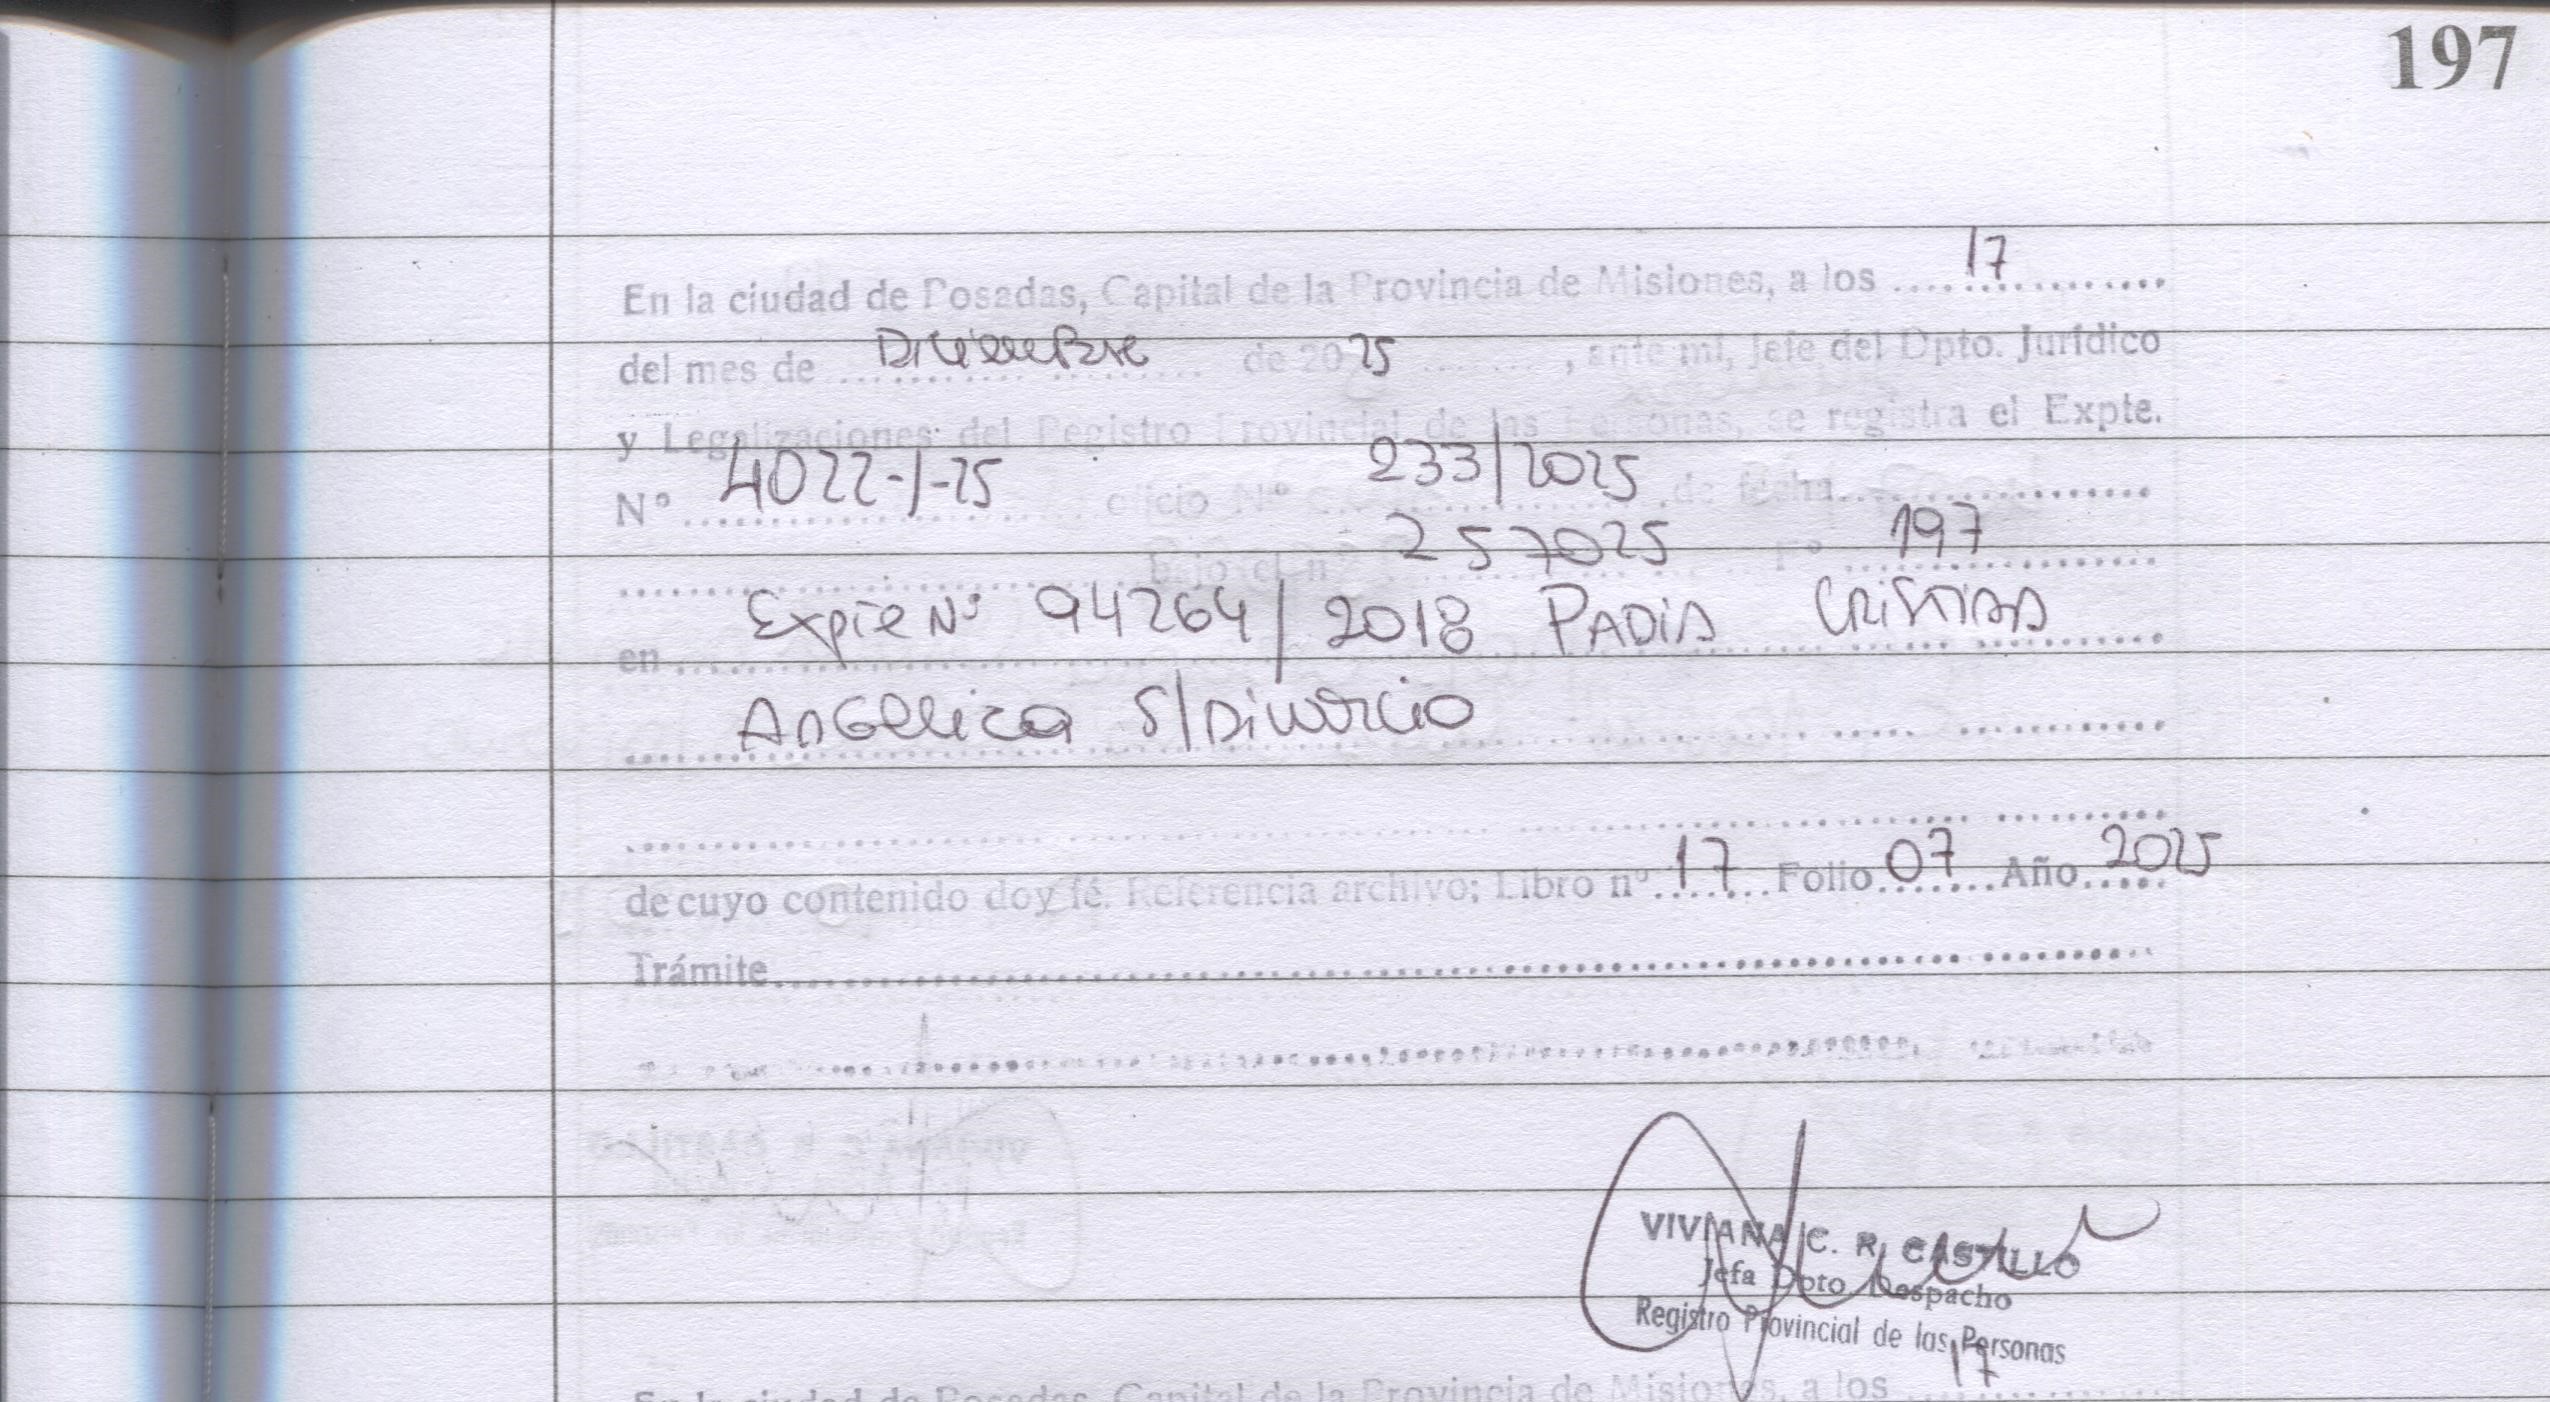 197
En la ciudad de Posadas, Capital de la Provincia de Misiones, a los 17
del mes de Diciembre de 2025, ante mí, Jefe del Dpto. Jurídico
y Legalizaciones del Registro Provincial de las Personas, se registra el Expte.
Nº 4022-J-25 oficio Nº 233/2025 de fecha
bajo el nº 257025 Fº 197
en Expte Nº 94264/2018 PADIA CRISTINA
ANGELICA S/DIVORCIO
de cuyo contenido doy fé. Referencia archivo; Libro nº 17 Folio 07 Año 2025
Trámite
VIVIANA C. R. CASTILLO
Jefa Dpto. Despacho
Registro Provincial de las Personas
En la ciudad de Posadas, Capital de la Provincia de Misiones, a los 17